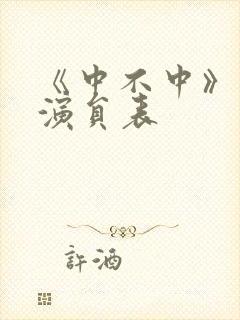 《中不中》
演員表
許酒